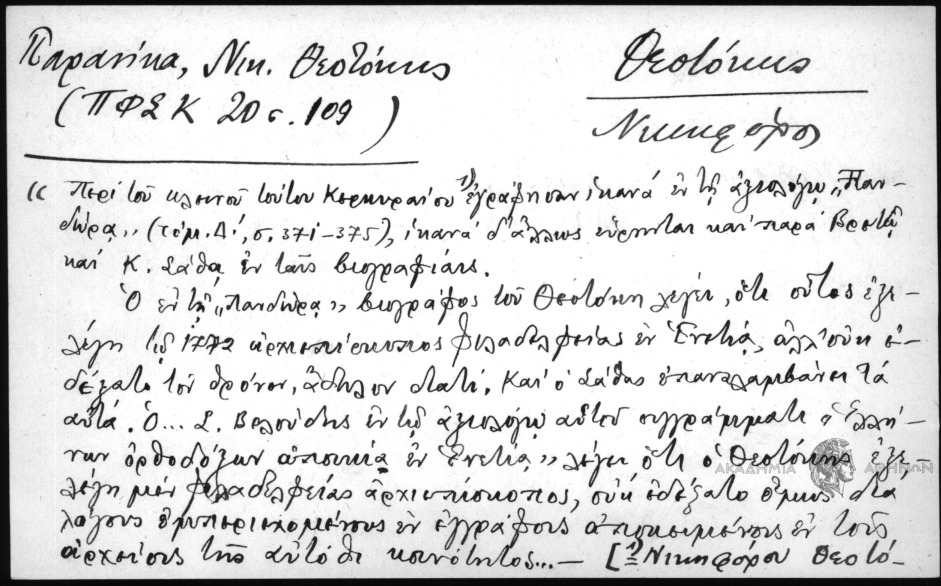 Παρανίκα, Νικ. Θεοτόκης
(ΠΦΣΚ 20 σ. 109)
Θεοτόκης
Νικηφόρος
“ Περί τοῦ κλεινοῦ τούτου Κερκυραίου ¹⁾ ἐγράφησαν ἱκανά ἐν τῇ ἀξιολόγῳ „Παν-
δώρᾳ„ (τόμ. Δ', σ. 371-375), ἱκανά δ' ἄλλως εὕρηνται καί παρά Βρετῷ
καί Κ. Σάθᾳ ἐν ταῖς βιογραφίαις.
Ὁ ἐν τῇ „Πανδώρᾳ„ βιογράφος τοῦ Θεοτόκη λέγει, ὅτι οὗτος ἐξε-
λέγη τῷ 1772 ἀρχιεπίσκοπος Φιλαδελφείας ἐν Ἑνετίᾳ, ἀλλ' οὐκ ἐ-
δέξατο τόν θρόνον, ἄδηλον διατί. Καί ὁ Σάθας ἐπαναλαμβάνει τά
αὐτά. Ὁ... Σ. Βελούδης ἐν τῷ ἀξιολόγῳ αὐτοῦ συγγράμματι „Ἑλλή-
νων ὀρθοδόξων ἀποικία ἐν Ἑνετίᾳ„ λέγει ὅτι ὁ Θεοτόκης ἐξε-
λέγη μέν Φιλαδελφείας ἀρχιεπίσκοπος, οὐκ ἐδέξατο ὅμως διά
λόγους ἐμπεριεχομένους ἐν ἐγγράφοις ἀποκειμένοις ἐν τοῖς
ἀρχείοις τῆς αὐτόθι κοινότητος...— [¹⁾ Νικηφόρου Θεοτό-
ΑΚΑΔΗΜΙΑ ΑΘΗΝΩΝ